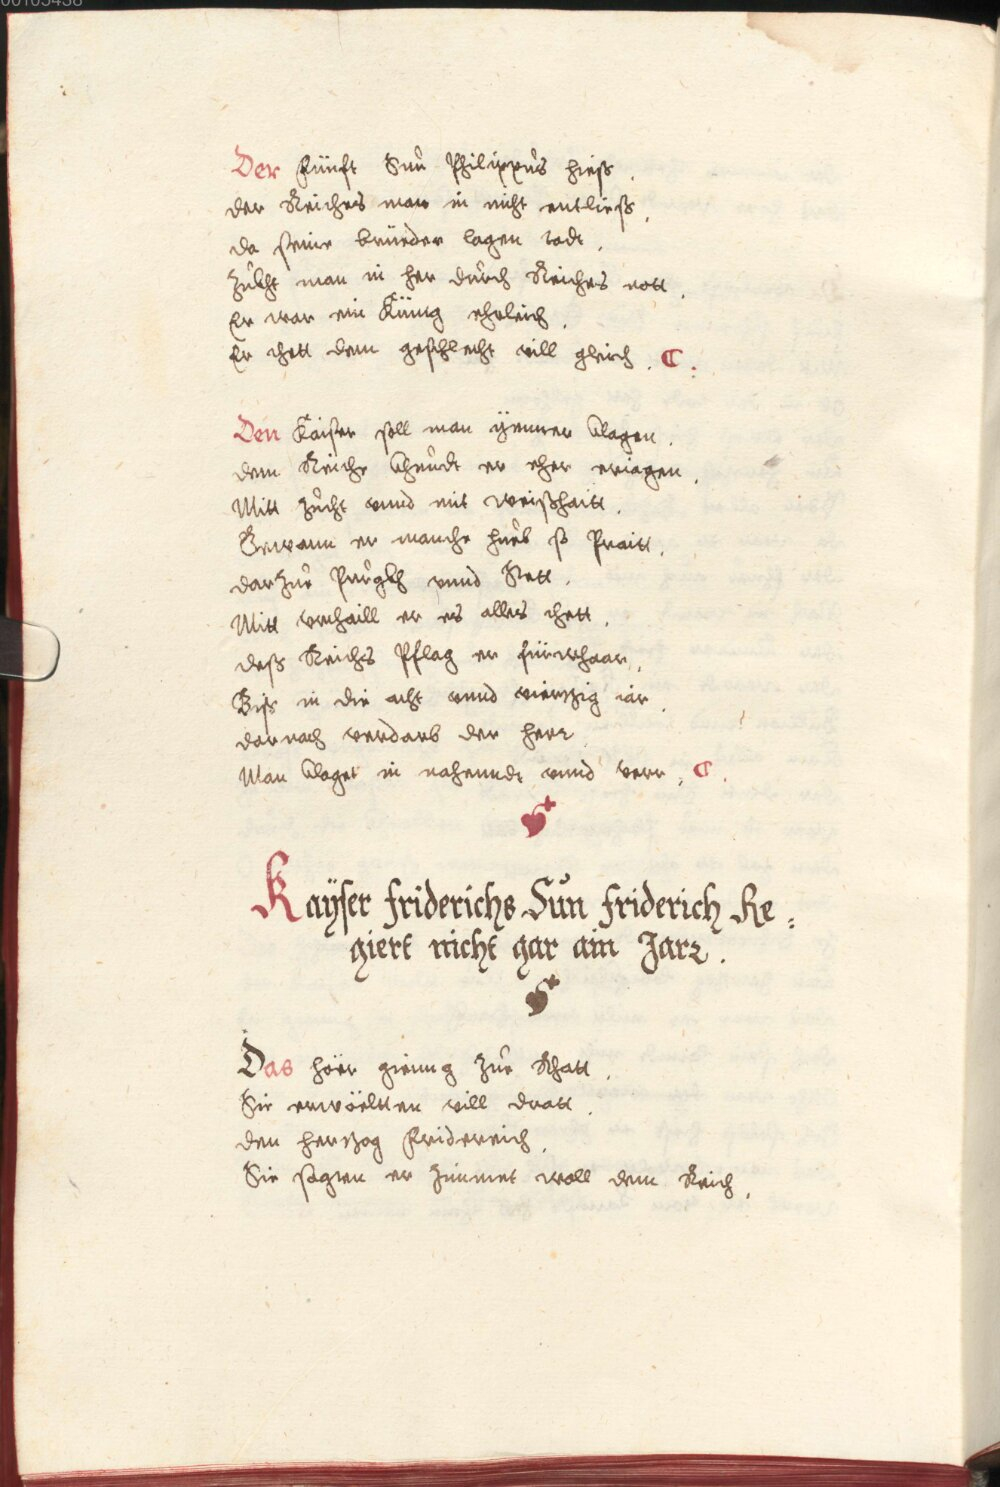 00103458
Der Fünft Sun Philippus hieß.
der Reiches man in nicht entließ,
da seine brüeder lagen todt,
Zucht man in her durch Reiches nott,
Er war ein Künig ehrleich,
Er thett dem geschlecht vill gleich. C.
Den Kaiser soll man ÿmmer klagen,
dem Reiche khundt er eher eriagen,
Mitt zucht vnnd mit weißhaitt,
Gewann er manche hueb so Praitt,
darzue Purgkh vnnd Stett,
Mitt vrthaill er es alles thett,
deß Reichs Pflag er fürwhaar,
Biß in die acht vnnd vierzig iar,
darnach verdarb der herr
Man klaget in nahenndt vnnd verr, C.
Kayser friderichs Sun friderich Re⸗
giert nicht gar ain Jarr.
Das höer gienng zue Rhatt,
Sie erwöeltten vill dratt,
den herzog Fridereich,
Sie sagten er zimmet woll dem Reich,